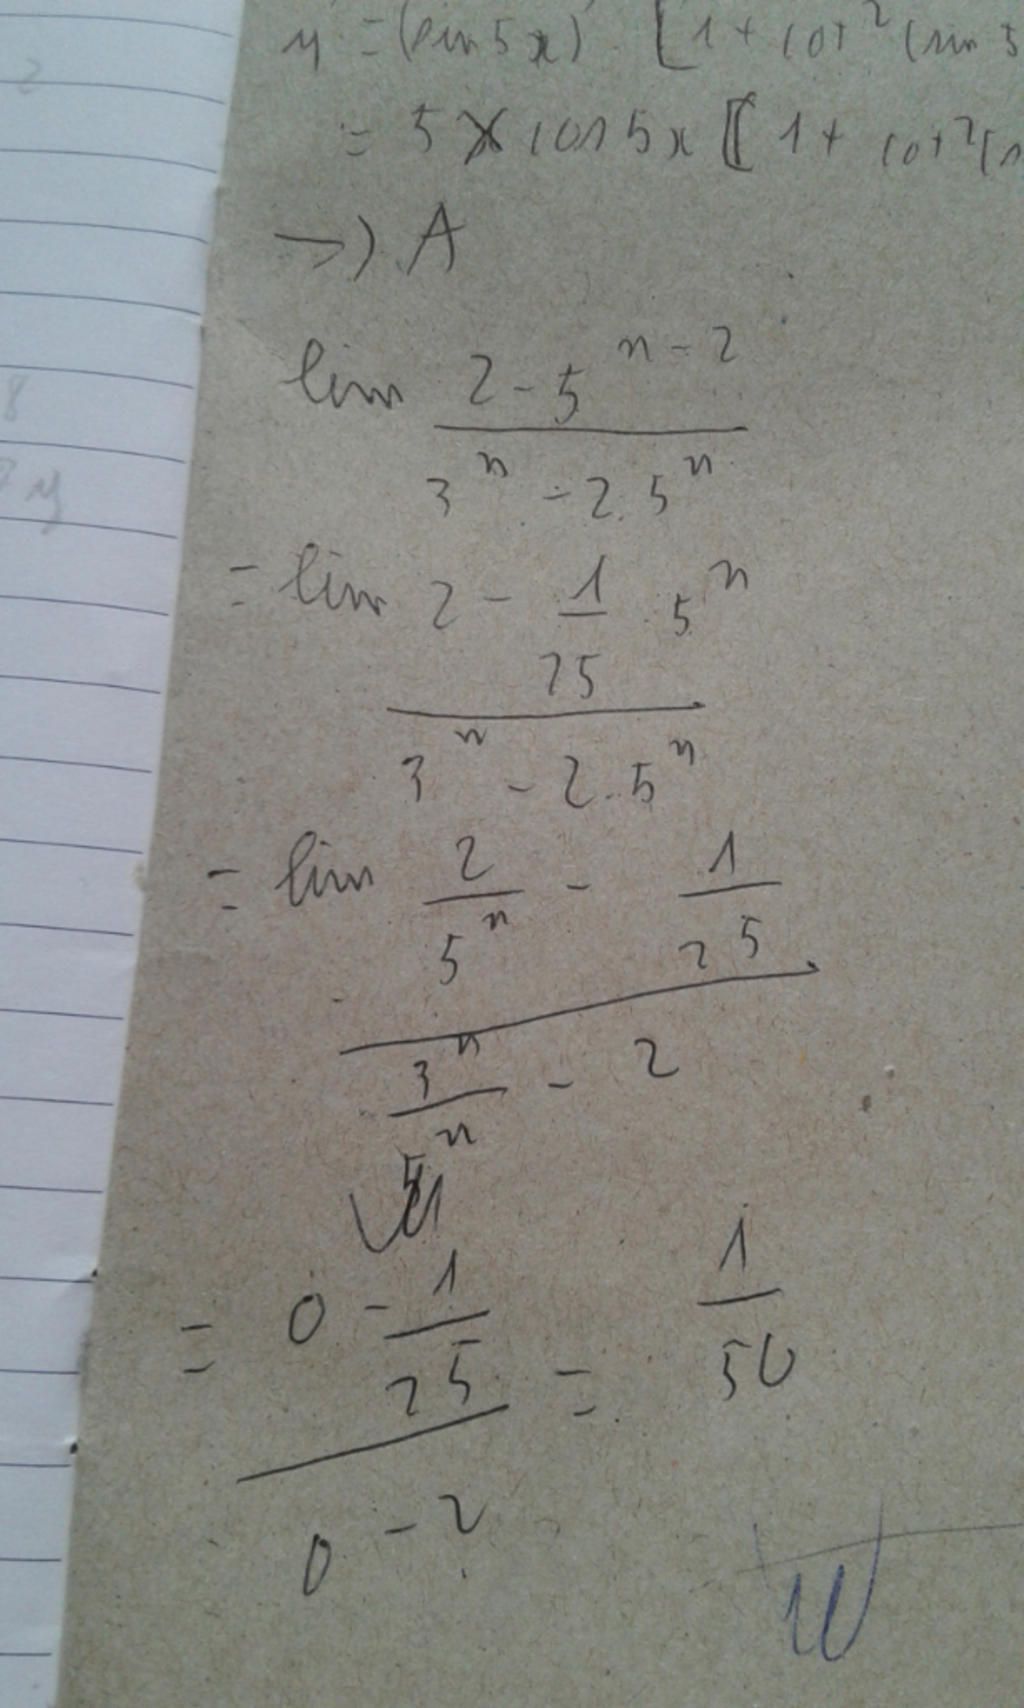 y' = (sin 5x)' [1 + cot² (sin 5
= 5 cos 5x [1 + cot² (
→) A
lim (2 - 5^(n-2)) / (3^n - 2.5^n)
= lim (2 - 1/25 . 5^n) / (3^n - 2.5^n)
= lim (2/5^n - 1/25) / (3^n/5^n - 2)
= (0 - 1/25) / (0 - 2) = 1/50